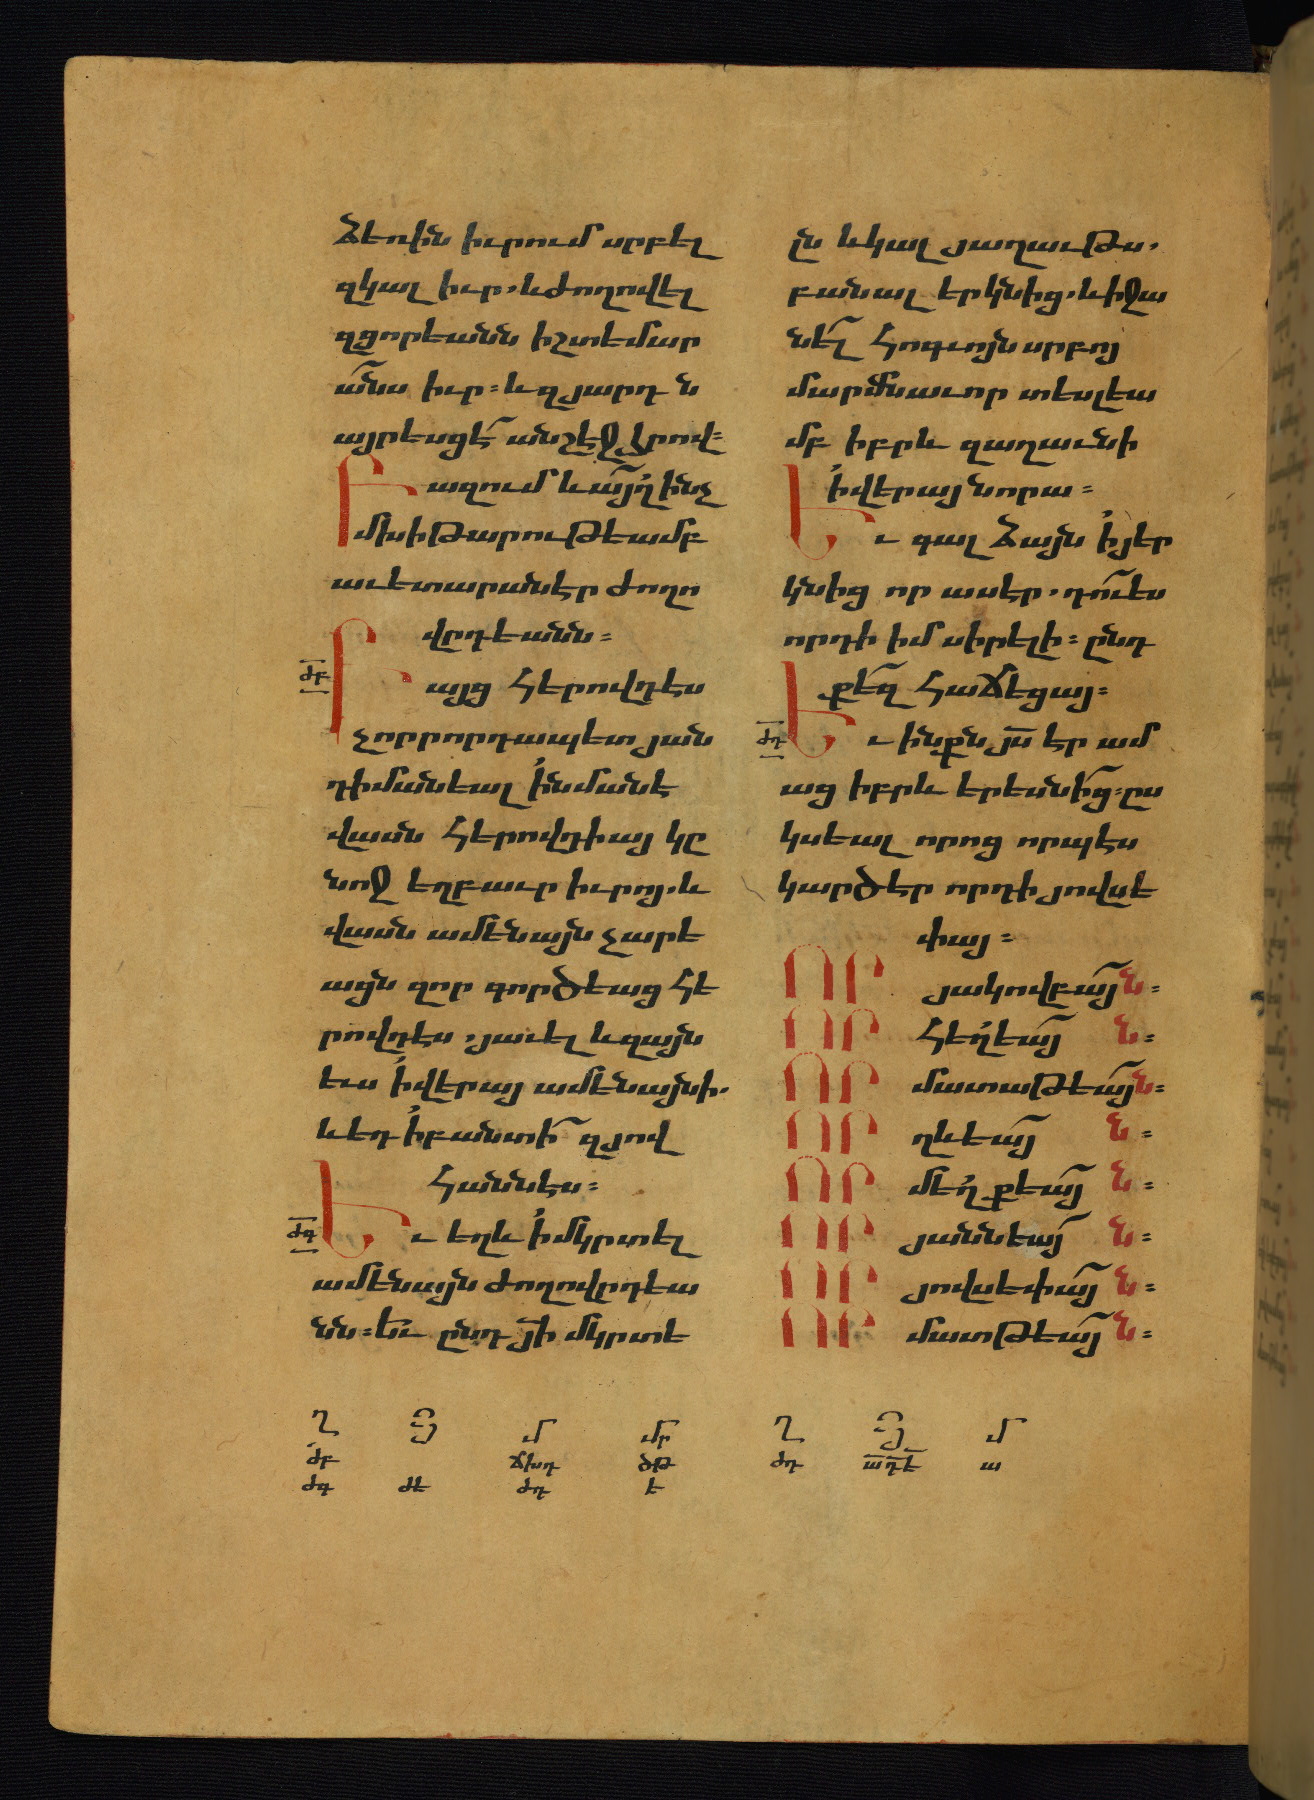 ձեռին իւրում սրբել
զկալ իւր. և ժողովել
զցորեանն ի շտեմար
ա՟նս իւր։ և զյարդ ն
այրեսցէ՟ անշէջ հրով։
Բազում և ա՟յղ ինչ
մխիթարութեամբ
աւետարանէր ժողո
վրդեանն։
ԺԲ
Բայց Հերովդէս
չորրորդապետ յան
դիմանեալ ի նմանէ
վասն Հերովդիայ կը
նոջ եղբաւր իւրոյ. և
վասն ամենայն չարե
ացն զոր գործեաց Հե
րովդէս, յաւել և զայն
ևս ի վերայ ամենայնի.
և եդ ի բանտի՟ զյով
Հաննէս։
ԺԳ
Եւ եղև ի մկրտել
ամենայն ժողովրդեա
նն։ Եւ ընդ յ՟ի մկրտե
լն և կալ յաղաւթս,
բանալ երկնից. և իջա
նե՟լ Հոգւոյն սրբոյ
մարմնաւոր տեսլեա
մբ իբրև զաղաւնի
ի վերայ նորա։
Եւ գալ ձայն ի յեր
կնից որ ասէր. դո՟ւես
որդի իմ սիրելի։ ընդ
քե՟զ Հաճեցայ։
ԺԴ
Եւ ինքն յ՟ս էր ամ
աց իբրև երեսնի՟ց. ըս
կսեալ որոց որպէս
կարծէր որդի յովսե
փայ։
ՈՐ յակովբա՟յն։
ՈՐ Հեղեա՟յ ն։
ՈՐ մատաթեա՟յն։
ՈՐ ղևեա՟յ ն։
ՈՐ մեղքեա՟յ ն։
ՈՐ յաննեա՟յ ն։
ՈՐ յովսեփա՟յ ն։
ՈՐ մատթեա՟յ ն։
Ղ Յ Մ Մր Ղ Յ Մ
ժբ ճխդ ծթ ժդ ա դ է ա
ժգ ժե ժդ է